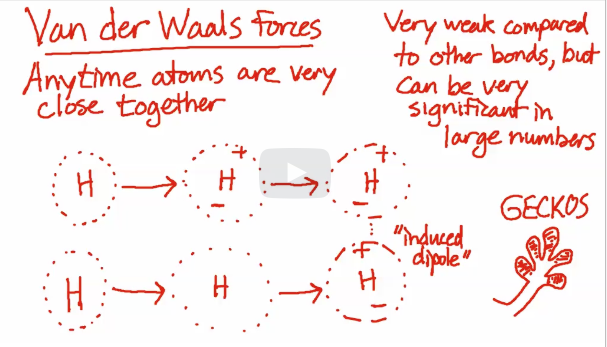 Van der Waals Forces
Anytime atoms are very
close together
Very weak compared
to other bonds, but
can be very
significant in
large numbers
H
+
H
-
+
H
-
GECKOS
"induced
dipole"
H
H
+
H
-